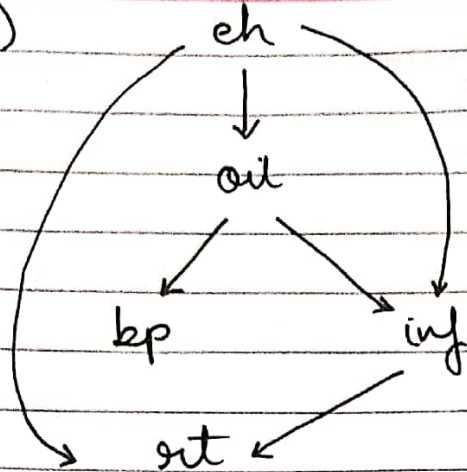 )
eh
oil
bp inf
rt